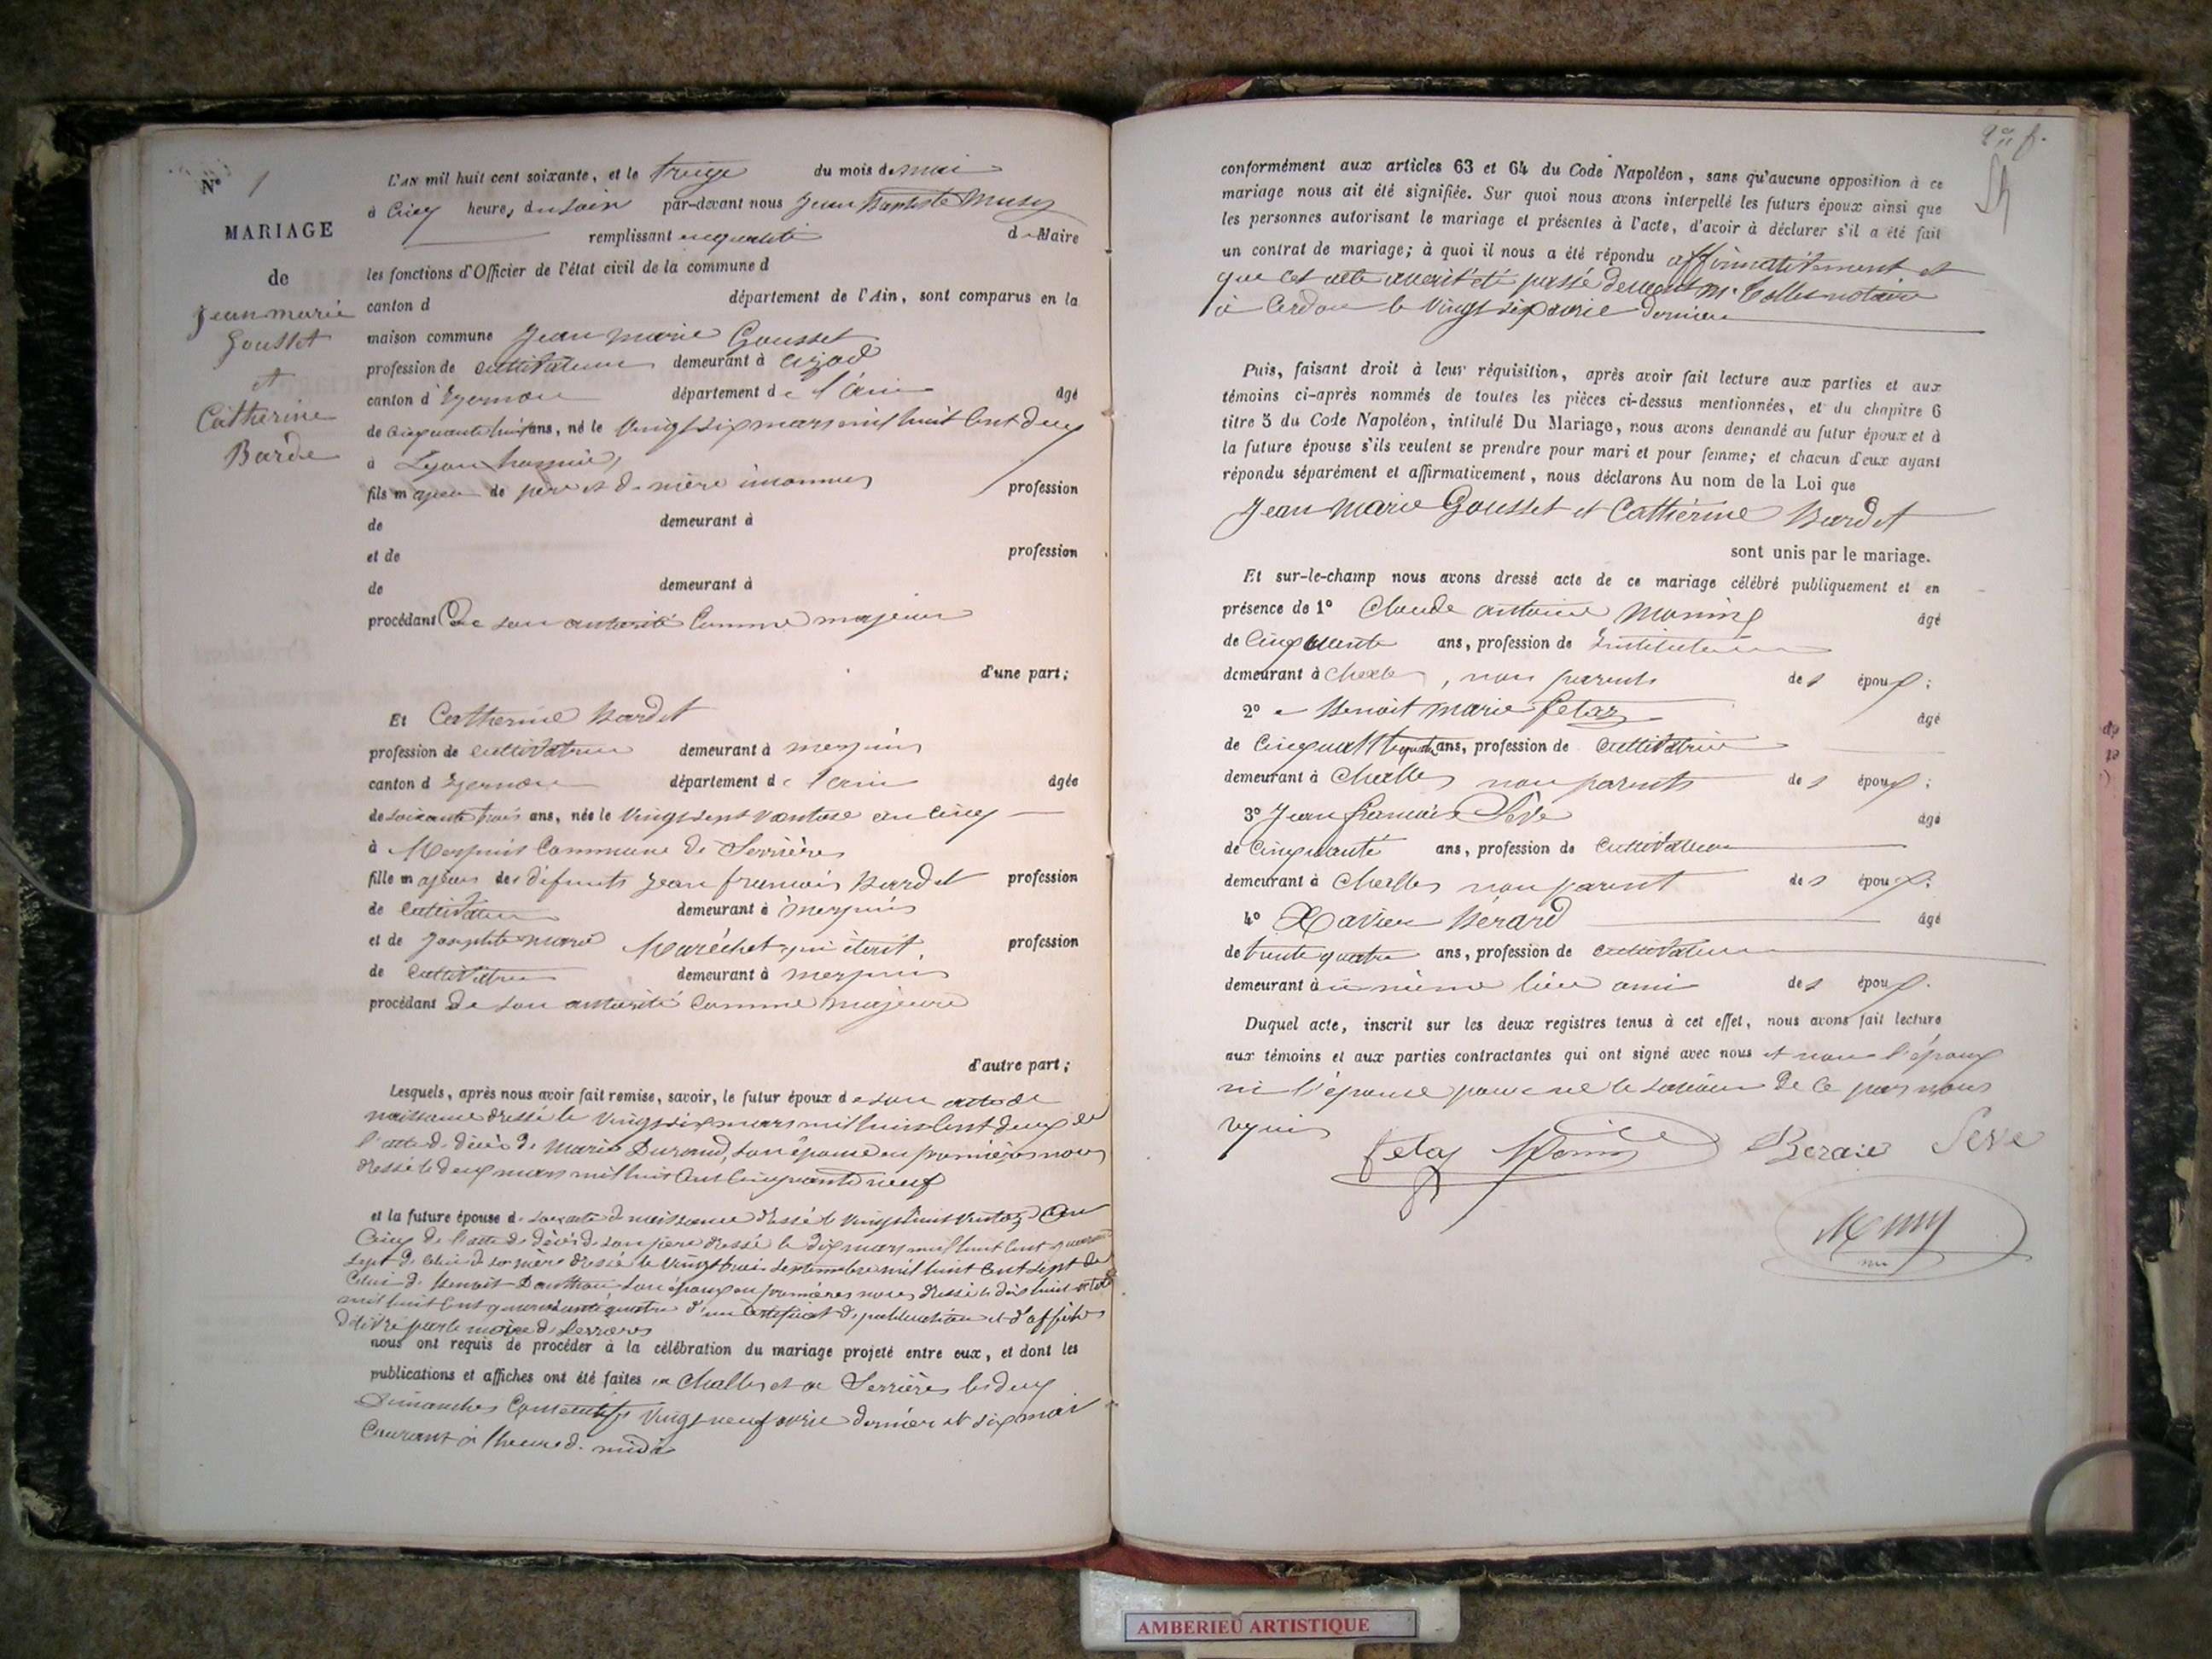 N° 1
MARIAGE
de
Jean marie
Gousset
et
Catherine
Barde
L'AN mil huit cent soixante, et le treize du mois de mai
à cinq heures du soir par-devant nous Jean Baptiste Musy
remplissant en qualité de Maire
les fonctions d'Officier de l'état civil de la commune d
canton d département de l'Ain, sont comparus en la
maison commune Jean marie Gousset
profession de cultivateur demeurant à
canton d département de l'ain âgé
de cinquante huit ans, né le vingt six mars mil huit cent deux
à Lyon
fils majeur de père et de mère inconnus profession
de demeurant à
et de profession
de demeurant à
procédant De son autorité comme majeur
d'une part;
Et Catherine Bardet
profession de cultivatrice demeurant à merpuis
canton d département de l'ain âgée
de soixante trois ans, née le vingt sept ventose an cinq
à Merpuis Commune de Serrières
fille majeure des défunts Jean francois Bardet profession
de cultivateur demeurant à merpuis
et de Josephte marie Maréchet qui était profession
de cultivatrice demeurant à merpuis
procédant de son autorité comme majeure
d'autre part;
Lesquels, après nous avoir fait remise, savoir, le futur époux de son acte de
naissance dressé le vingt six mars mil huit cent deux de
l'acte de décès de Marie Durand, son épouse en premières noces
dressé le deux mars mil huit cent cinquante neuf
et la future épouse de son acte de naissance dressé le vingt huit ventose an
cinq de l'acte de décès de son père dressé le dix mars mil huit cent quarante
sept de celui de sa mère dressé le vingt trois septembre mil huit cent sept de
celui de Benoit son époux en premières noces dressé le dix huit octobre
mil huit cent quarante quatre d'un certificat de publication et d'affiches
délivré par le maire de Serrières
nous ont requis de procéder à la célébration du mariage projeté entre eux, et dont les
publications et affiches ont été faites à Challes et à Serrières les deux
Dimanches consécutifs vingt neuf avril dernier et six mai
Courant à l'heure de midi
conformément aux articles 63 et 64 du Code Napoléon, sans qu'aucune opposition à ce
mariage nous ait été signifiée. Sur quoi nous avons interpellé les futurs époux ainsi que
les personnes autorisant le mariage et présentes à l'acte, d'avoir à déclarer s'il a été fait
un contrat de mariage; à quoi il nous a été répondu affirmativement et
que cet acte avait été passé devant Me Collet notaire
à Cerdon le vingt six avril dernier
Puis, faisant droit à leur réquisition, après avoir fait lecture aux parties et aux
témoins ci-après nommés de toutes les pièces ci-dessus mentionnées, et du chapitre 6
titre 5 du Code Napoléon, intitulé Du Mariage, nous avons demandé au futur époux et à
la future épouse s'ils veulent se prendre pour mari et pour femme; et chacun d'eux ayant
répondu séparément et affirmativement, nous déclarons Au nom de la Loi que
Jean Marie Gousset et Catherine Bardet
sont unis par le mariage.
Et sur-le-champ nous avons dressé acte de ce mariage célébré publiquement et en
présence de 1° Claude antoine âgé
de Cinquante ans, profession de Instituteur
demeurant à Challes, non parents des époux;
2° Benoit marie fetaz âgé
de ans, profession de
demeurant à Challes non parents des époux;
3° Jean francois Sève âgé
de Cinquante ans, profession de cultivateur
demeurant à Challes non parent des époux;
4° Xavier Bérard âgé
de trente quatre ans, profession de cultivateur
demeurant à même lieu ami des époux.
Duquel acte, inscrit sur les deux registres tenus à cet effet, nous avons fait lecture
aux témoins et aux parties contractantes qui ont signé avec nous et non l'époux
ni l'épouse pour ne le savoir de ce par nous
requis
fetaz Berard Seve
Musy
AMBERIEU ARTISTIQUE